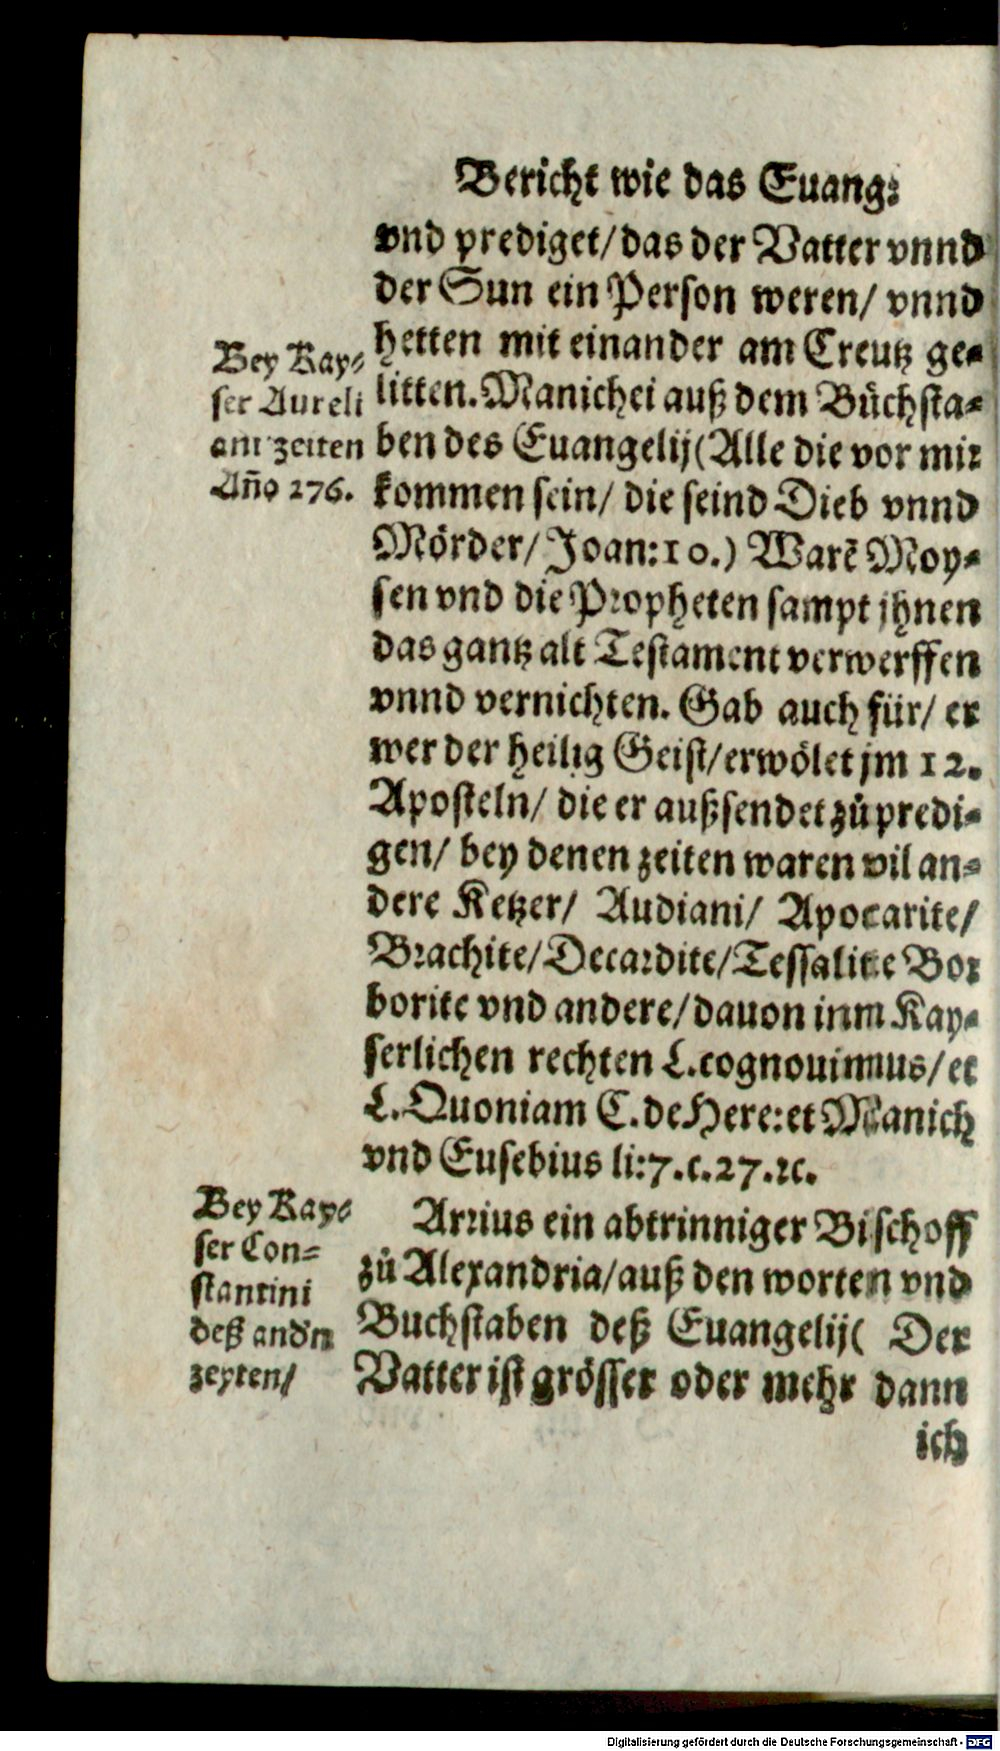 Bericht wie das Euang:
vnd prediget/das der Vatter vnnd
der Sun ein Person weren/ vnnd
hetten mit einander am Creutz ge-
litten. Manichei auß dem Bůchsta-
ben des Euangelij(Alle die vor mir
kommen sein/ die seind Dieb vnnd
Mörder/ Joan:10.) Warē Moy-
sen vnd die Propheten sampt jhnen
das gantz alt Testament verwerffen
vnnd vernichten. Gab auch für/ er
wer der heilig Geist/erwölet jm 12.
Aposteln/ die er außsendet zů predi-
gen/ bey denen zeiten waren vil an-
dere Ketzer/ Audiani/ Apocarite/
Brachite/Decardite/Tessalite Bor
borite vnd andere/dauon inm Kay-
serlichen rechten L.cognouimus/et
L.Quoniam C.de Here:et Manich
vnd Eusebius li:7.c.27.ꝛc.
Arrius ein abtrinniger Bischoff
zů Alexandria/auß den worten vnd
Buchstaben deß Euangelij( Der
Vatter ist grösser oder mehr dann
ich
Bey Kay-
ser Aureli
ani zeiten
Añο 276.
Bey Kay-
ser Con-
stantini
deß and'n
zeyten/
Digitalisierung gefördert durch die Deutsche Forschungsgemeinschaft - DFG